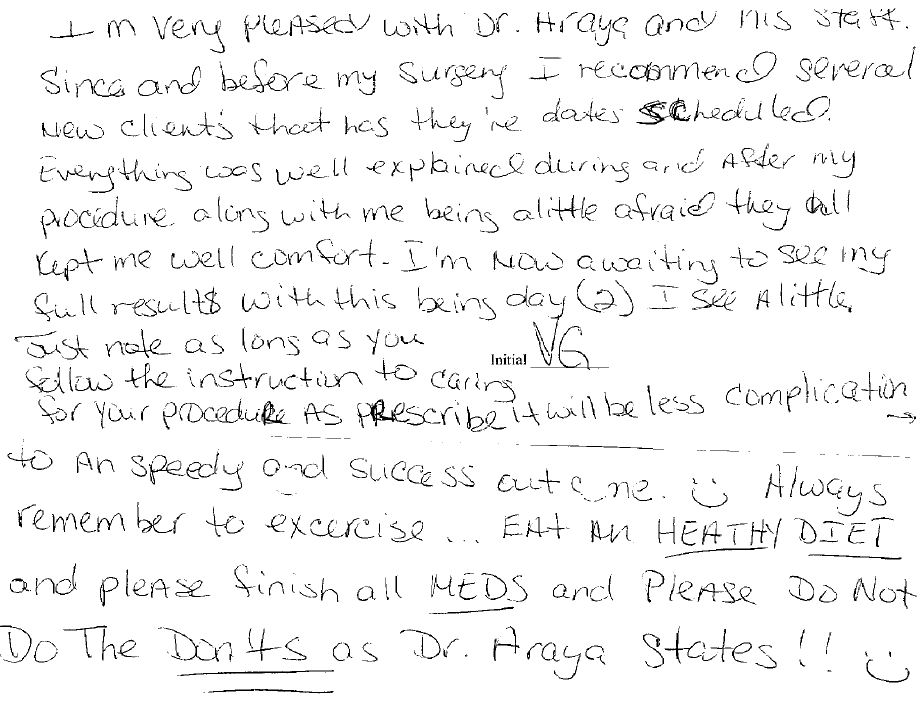 I'm very pleased with Dr. Araya and his staff.
Since and before my surgery I recommend several
new client's that has they're dates scheduled.
Everything was well explained during and After my
procedure along with me being alittle afraid they all
kept me well comfort. I'm now awaiting to see my
full results with this being day (2) I see Alittle,
Just note as long as you
Initial VG
follow the instruction to caring
for your procedure As prescribe it will be less complication →
to An speedy and success outcome. ☺ Always
remember to excercise ... EAt AN HEATHY DIET
and pleAse finish all MEDS and PleAse Do Not
Do The Don'ts as Dr. Araya States!! ☺